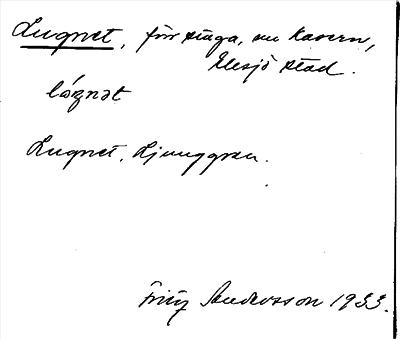 Lugnet, för stuga, nu kasern,
Eksjö stad.
lógnət
Lugnet, Ljunggren.
Fritz Andersson 1933.